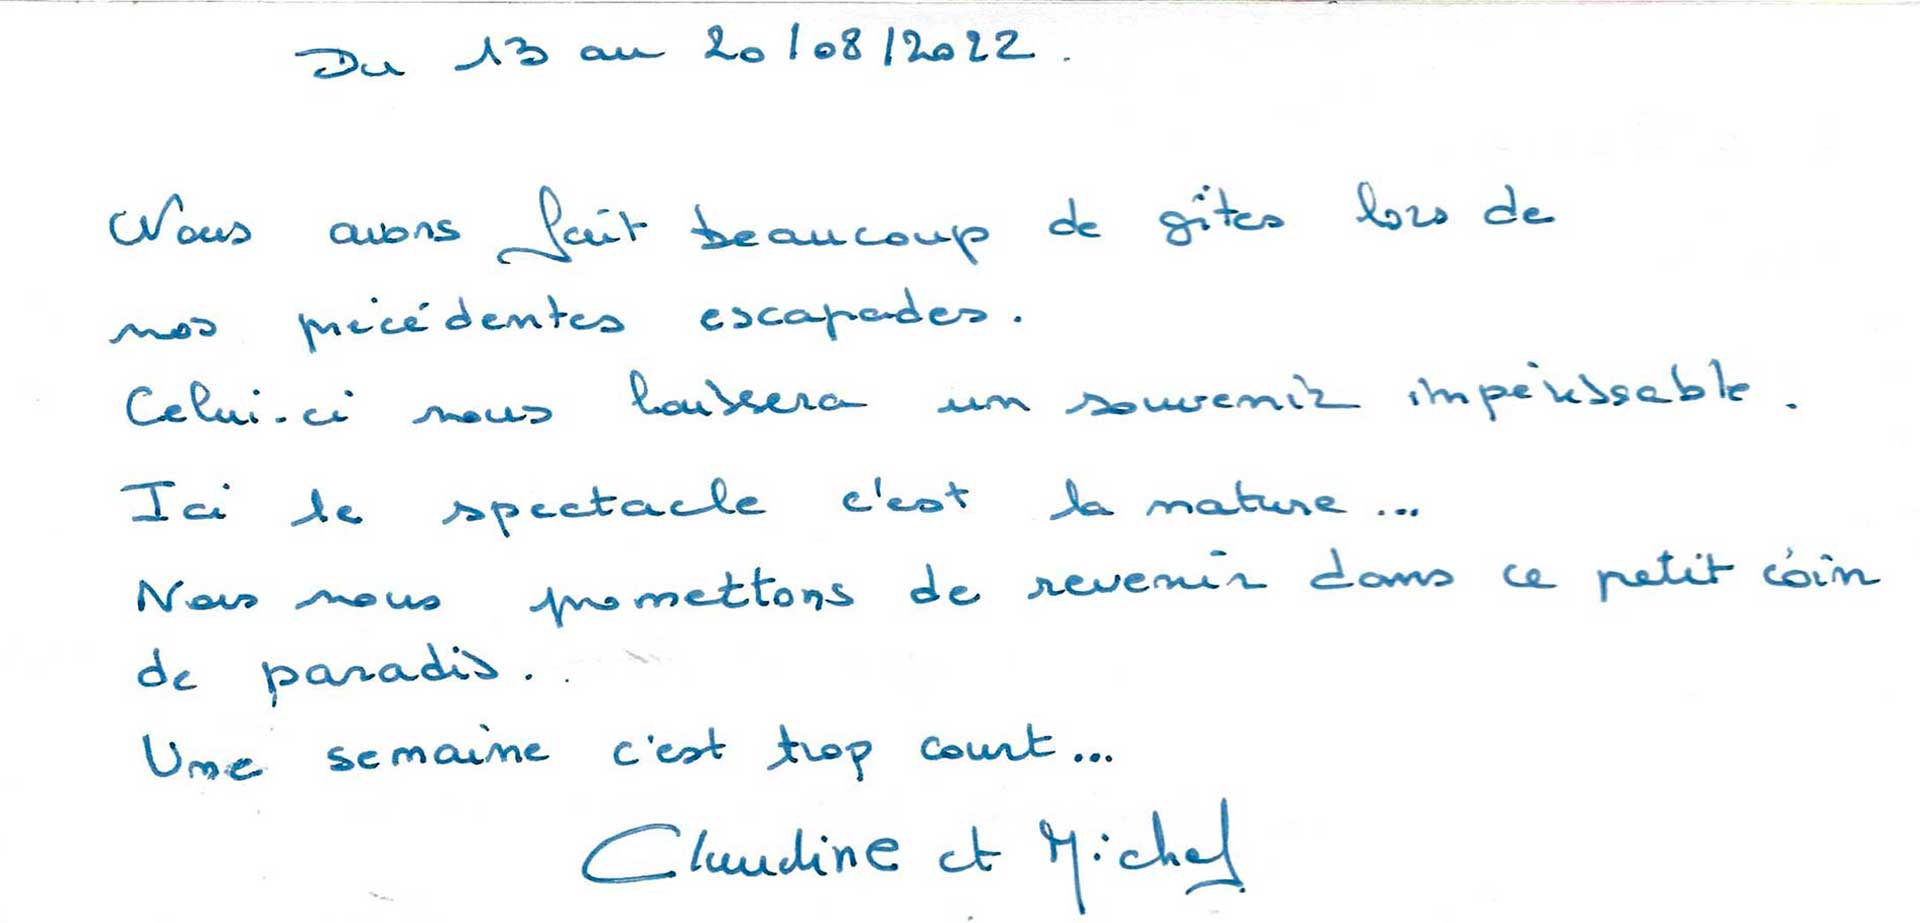 Du 13 au 20/08/2022.
Nous avons fait beaucoup de gîtes lors de
nos précédentes escapades.
Celui-ci nous laissera un souvenir impérissable.
Ici le spectacle c'est la nature...
Nous nous promettons de revenir dans ce petit coin
de paradis..
Une semaine c'est trop court...
Claudine et Michel